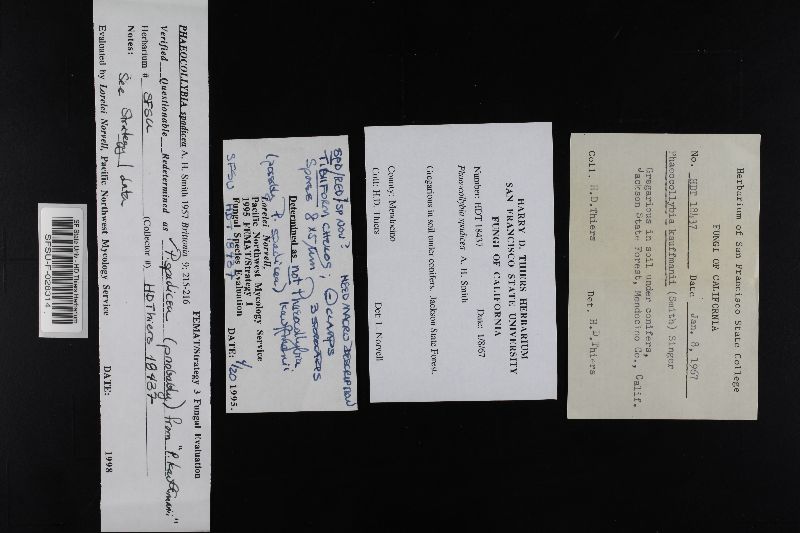 Herbarium of San Francisco State College
FUNGI OF CALIFORNIA
No. HDT 18437 Date Jan. 8, 1967
Phaeocollybia kauffmanii (Smith) Singer
Gregarious in soil under conifers,
Jackson State Forest, Mendocino Co., Calif.
Coll. H.D.Thiers Det. H.D.Thiers
HARRY D. THIERS HERBARIUM
SAN FRANCISCO STATE UNIVERSITY
FUNGI OF CALIFORNIA
Number: HDT 18437 Date: 1/8/67
Phaeocollybia spadicea A. H. Smith
Gregarious in soil under conifers, Jackson State Forest.
County: Mendocino
Coll: H.D. Thiers Det: L. Norvell
SPD/RED/SP NOV? NEED MACRO DESCRIPTION
TIBIIFORM CHEILOS; ⊖ CLAMPS
Spores 8 x 5 µm
Determined as not Phaeocollybia kauffmanii
(possibly P. spadicea)
Lorelei Norvell
Pacific Northwest Mycology Service
1995 FEMAT/Strategy 1
Fungal Species Evaluation DATE: 4/20 1995.
SFSU HDT 18437
FEMAT/Strategy 3 Fungal Evaluation
PHAEOCOLLYBIA spadicea A. H. Smith 1957 Brittonia 9: 215-216
Verified Questionable Redetermined as P. spadicea (probably) from "P. kauffmanii"
Herbarium # SFSU (Collector #) HDThiers 18437
Notes: See Strategy 1 data
Evaluated by Lorelei Norvell, Pacific Northwest Mycology Service DATE: 1998
SF State Univ - HD Thiers Herbarium
SFSU-F-028314